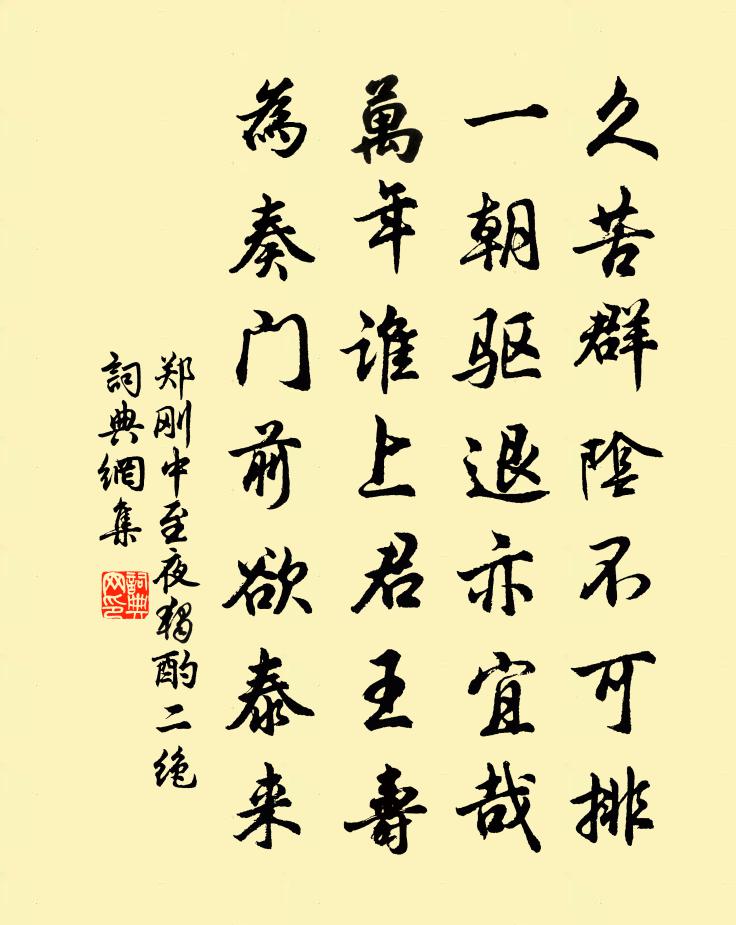 久苦群陰不可排
一朝驱退亦宜哉
萬年誰上君王壽
為奏门前欲泰来
郑刚中至夜独酌二绝
詞典網集
詞典网印